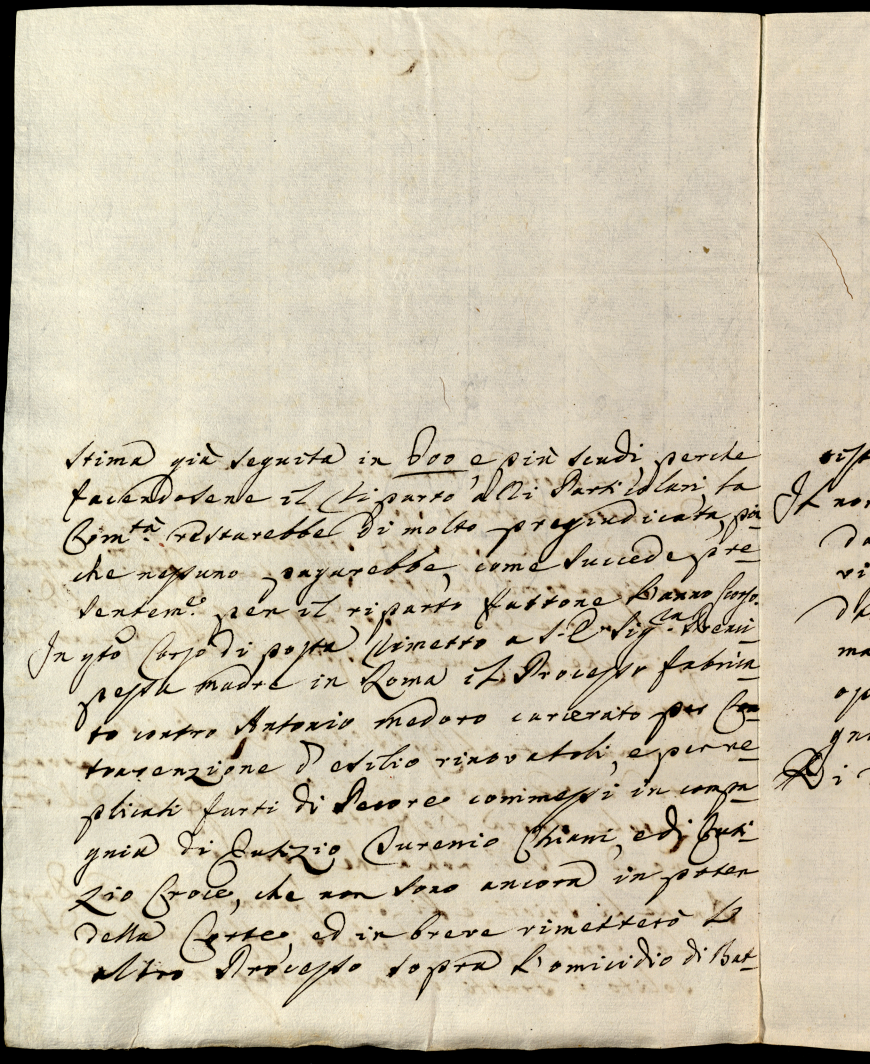 stima già seguita in 600 e più scudi, perche
facendosene il riparto alli Particolari, la
Com.tà restarebbe di molto pregiudicata, poi
che nessuno pagarebbe, come succede pre-
sentem.e per il riparto fattone l'anno scorso.
In q̃to Corso di posta rimetto a S. E. Sig.ra Prenci-
pessa madre in Roma il Processo fabrica-
to contro Antonio medoro carcerato per Con-
travenzione d'esilio rinovatoli, e per re-
plicati furti di Pecore commessi in compa-
gnia di Eutizio Chiani, e di Euti-
zio Croce, che non sono ancora in poter
della Corte, ed in breve rimetterò l'
altro Processo sopra l'omicidio di Bat-
It non
da
vi
da
ma
op
gn
Di